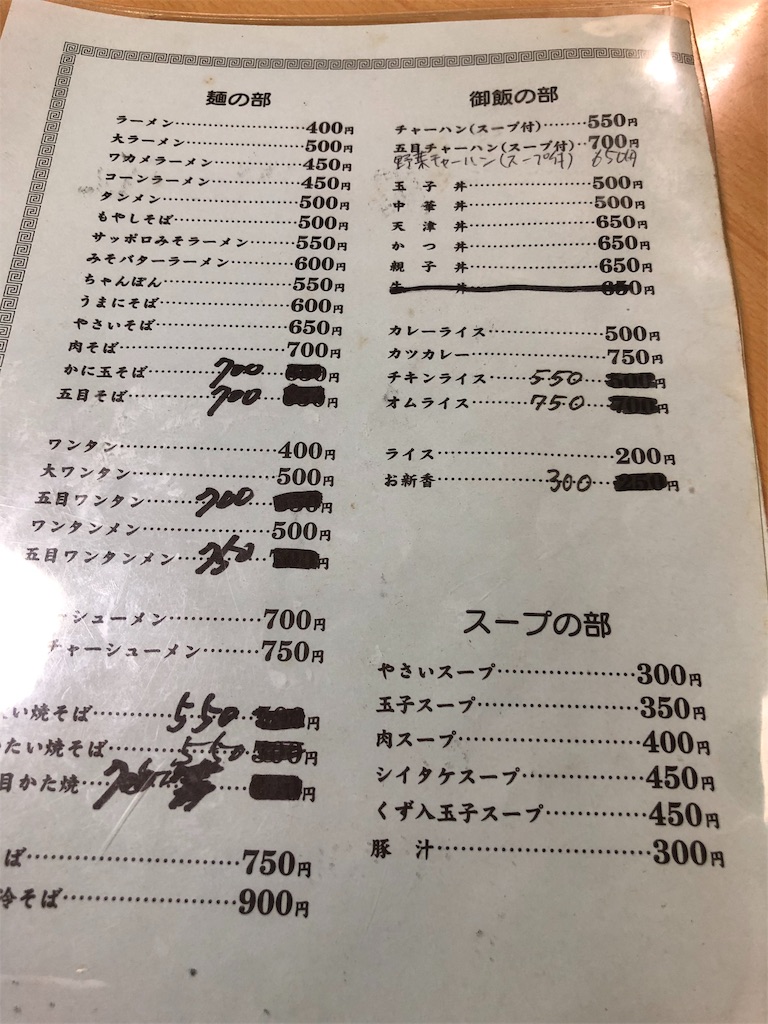 麺の部
ラーメン…………………400円
大ラーメン………………500円
ワカメラーメン…………450円
コーンラーメン…………450円
タンメン…………………500円
もやしそば………………500円
サッポロみそラーメン……550円
みそバターラーメン………600円
ちゃんぽん………………550円
うまにそば………………600円
やさいそば………………650円
肉そば……………………700円
かに玉そば……700…円
五目そば………700…円
ワンタン…………………400円
大ワンタン………………500円
五目ワンタン……700…円
ワンタンメン……………500円
五目ワンタンメン…750…円
ーシューメン……………700円
チャーシューメン………750円
い焼そば………550…円
たい焼そば……550…円
目かた焼………円
ば…………………………750円
冷そば……………………900円
御飯の部
チャーハン(スープ付)……550円
五目チャーハン(スープ付)‥700円
野菜チャーハン(スープ付) 650円
玉子丼……………………500円
中華丼……………………500円
天津丼……………………650円
かつ丼……………………650円
親子丼……………………650円
丼……………………650円
カレーライス……………500円
カツカレー………………750円
チキンライス……550…500円
オムライス………750…700円
ライス……………………200円
お新香……………300…250円
スープの部
やさいスープ……………300円
玉子スープ………………350円
肉スープ…………………400円
シイタケスープ…………450円
くず入玉子スープ………450円
豚汁………………………300円